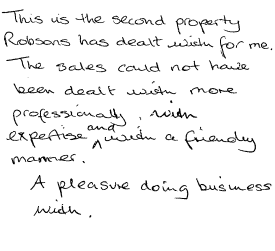 This is the second property
Robsons has dealt with for me.
The sales could not have
been dealt with more
professionally, with
expertise and with a friendly
manner.
A pleasure doing business
with.